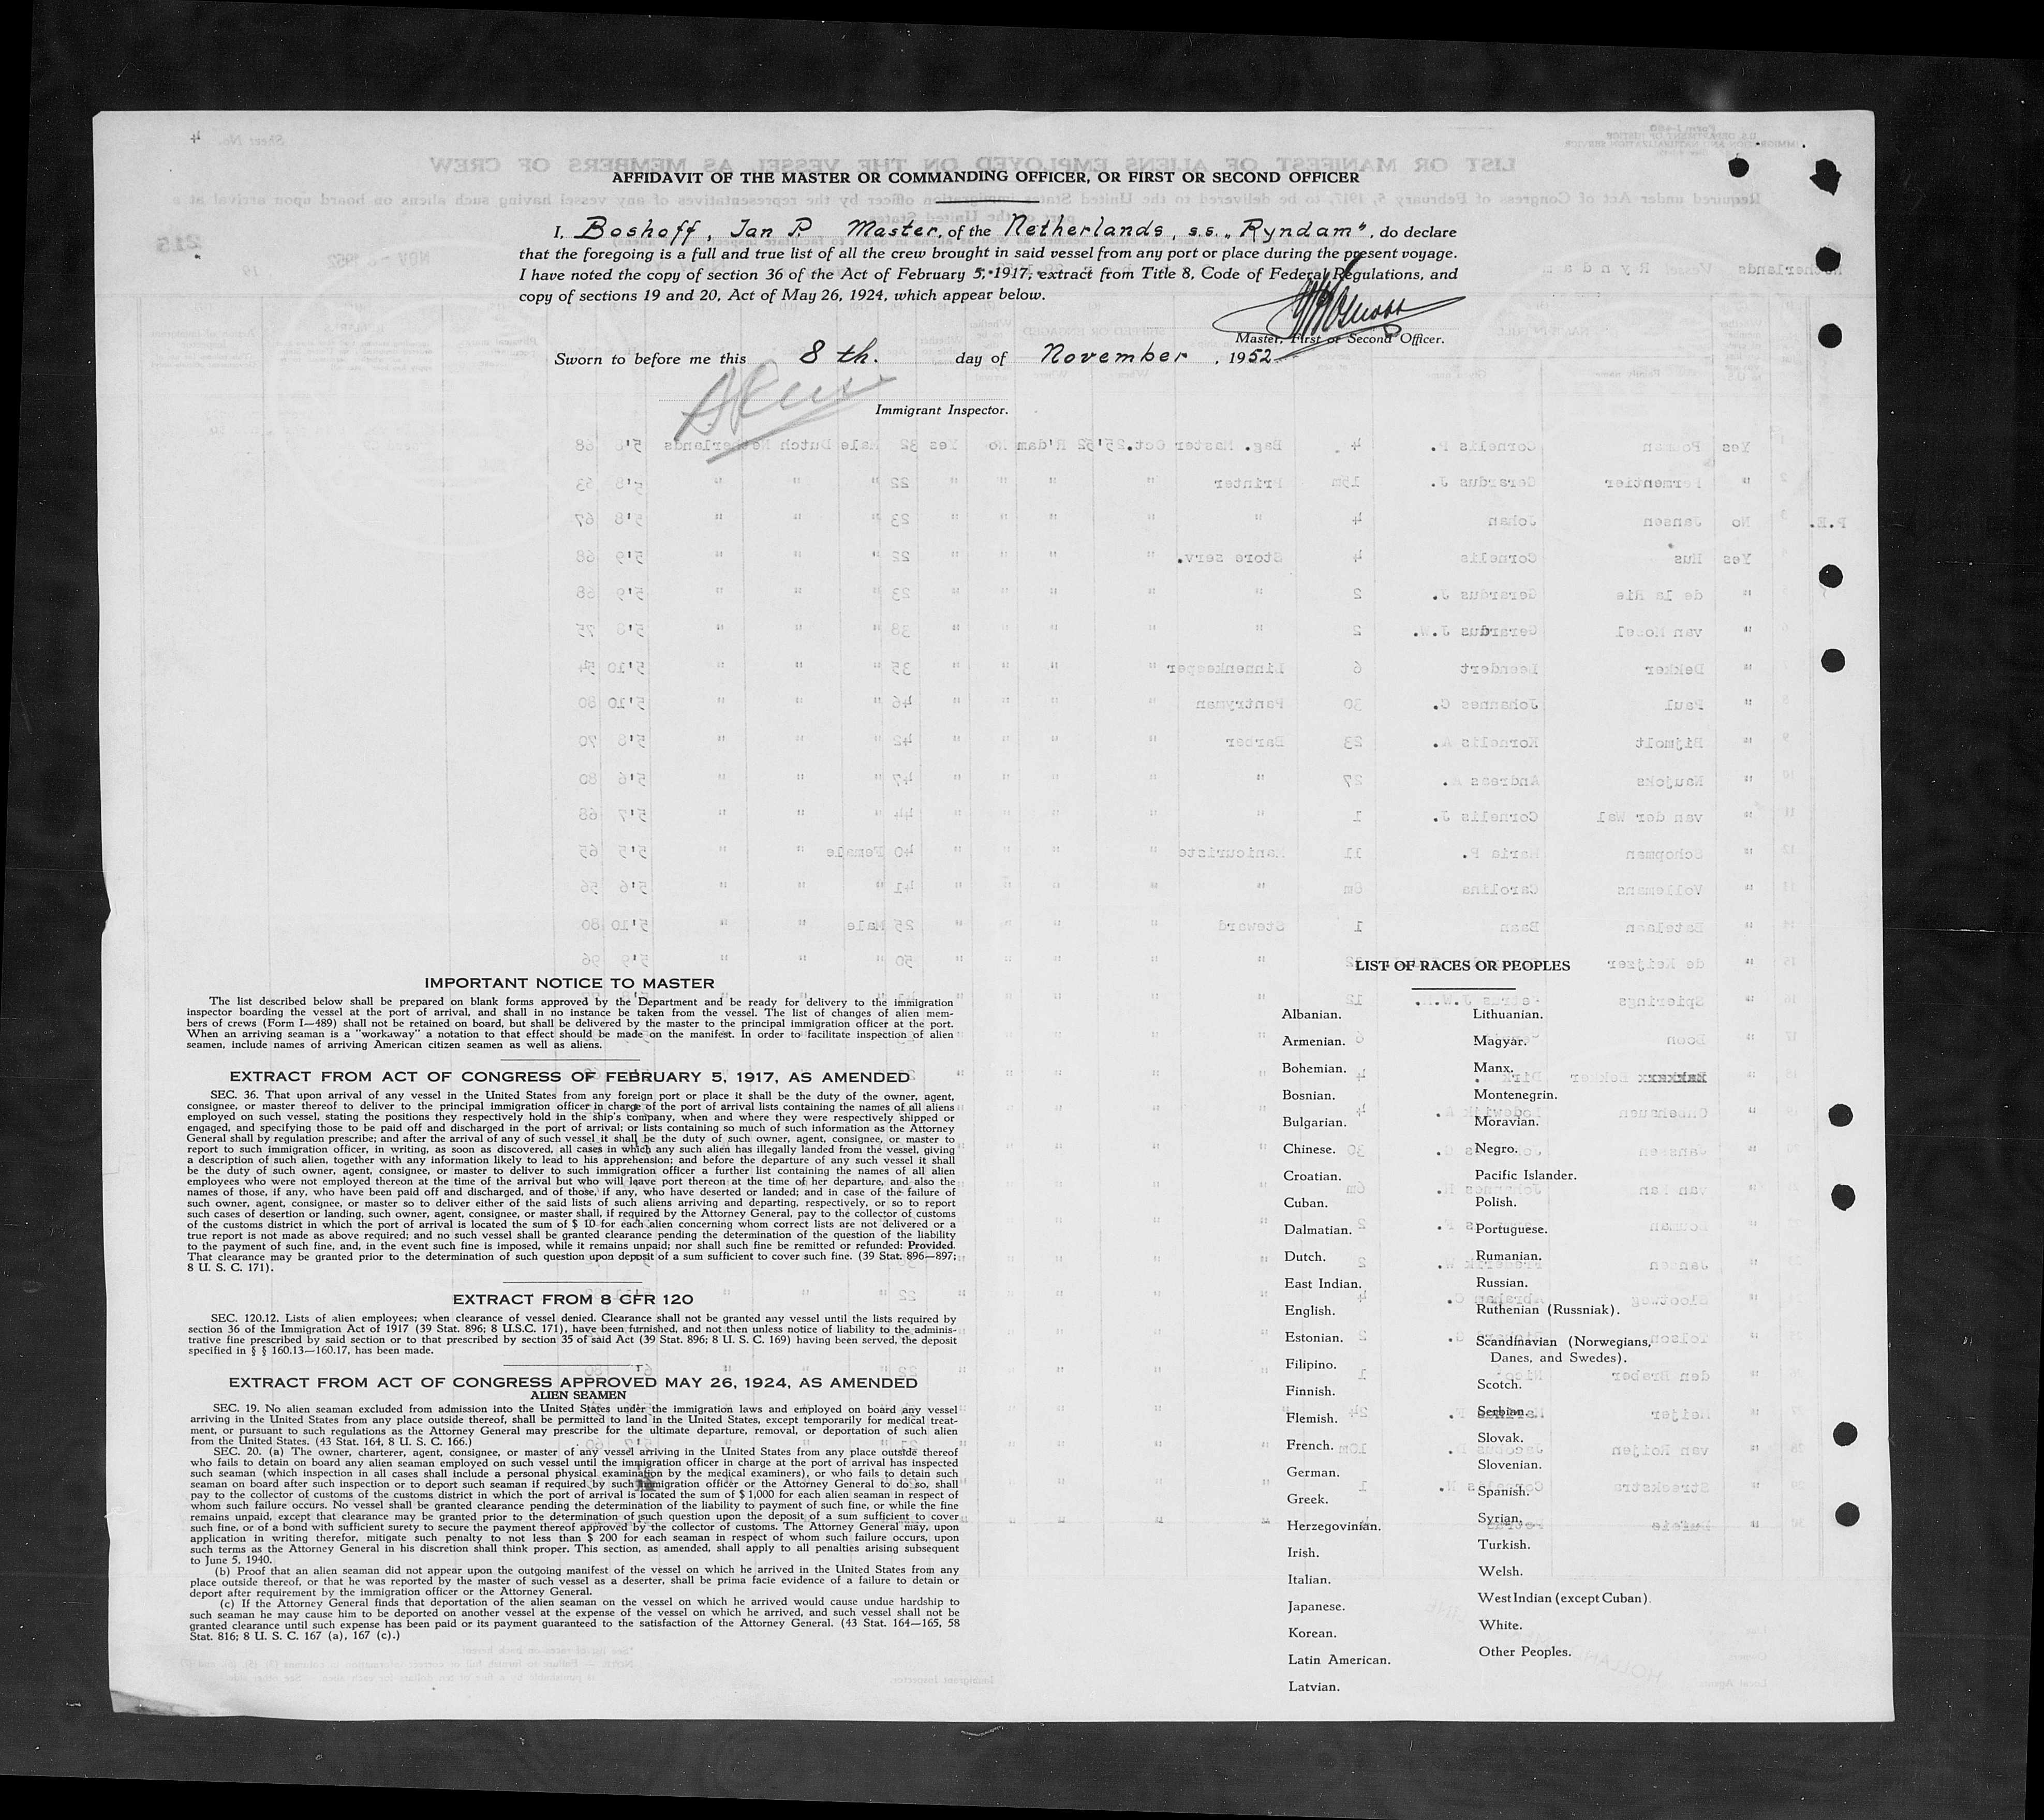 AFFIDAVIT OF THE MASTER OR COMMANDING OFFICER, OR FIRST OR SECOND OFFICER
I, Boshoff, Jan P. Master, of the Netherlands, s.s. „Ryndam", do declare
that the foregoing is a full and true list of all the crew brought in said vessel from any port or place during the present voyage.
I have noted the copy of section 36 of the Act of February 5, 1917, extract from Title 8, Code of Federal Regulations, and
copy of sections 19 and 20, Act of May 26, 1924, which appear below.
Master, First or Second Officer.
Sworn to before me this 8 th. day of November, 1952
Immigrant Inspector.
IMPORTANT NOTICE TO MASTER
The list described below shall be prepared on blank forms approved by the Department and be ready for delivery to the immigration
inspector boarding the vessel at the port of arrival, and shall in no instance be taken from the vessel. The list of changes of alien mem-
bers of crews (Form I—489) shall not be retained on board, but shall be delivered by the master to the principal immigration officer at the port.
When an arriving seaman is a "workaway" a notation to that effect should be made on the manifest. In order to facilitate inspection of alien
seamen, include names of arriving American citizen seamen as well as aliens.
EXTRACT FROM ACT OF CONGRESS OF FEBRUARY 5, 1917, AS AMENDED
SEC. 36. That upon arrival of any vessel in the United States from any foreign port or place it shall be the duty of the owner, agent,
consignee, or master thereof to deliver to the principal immigration officer in charge of the port of arrival lists containing the names of all aliens
employed on such vessel, stating the positions they respectively hold in the ship's company, when and where they were respectively shipped or
engaged, and specifying those to be paid off and discharged in the port of arrival; or lists containing so much of such information as the Attorney
General shall by regulation prescribe; and after the arrival of any of such vessel it shall be the duty of such owner, agent, consignee, or master to
report to such immigration officer, in writing, as soon as discovered, all cases in which any such alien has illegally landed from the vessel, giving
a description of such alien, together with any information likely to lead to his apprehension; and before the departure of any such vessel it shall
be the duty of such owner, agent, consignee, or master to deliver to such immigration officer a further list containing the names of all alien
employees who were not employed thereon at the time of the arrival but who will leave port thereon at the time of her departure, and also the
names of those, if any, who have been paid off and discharged, and of those, if any, who have deserted or landed; and in case of the failure of
such owner, agent, consignee, or master so to deliver either of the said lists of such aliens arriving and departing, respectively, or so to report
such cases of desertion or landing, such owner, agent, consignee, or master shall, if required by the Attorney General, pay to the collector of customs
of the customs district in which the port of arrival is located the sum of $ 10 for each alien concerning whom correct lists are not delivered or a
true report is not made as above required; and no such vessel shall be granted clearance pending the determination of the question of the liability
to the payment of such fine, and, in the event such fine is imposed, while it remains unpaid; nor shall such fine be remitted or refunded: Provided.
That clearance may be granted prior to the determination of such question upon deposit of a sum sufficient to cover such fine. (39 Stat. 896—897;
8 U. S. C. 171).
EXTRACT FROM 8 CFR 120
SEC. 120.12. Lists of alien employees; when clearance of vessel denied. Clearance shall not be granted any vessel until the lists required by
section 36 of the Immigration Act of 1917 (39 Stat. 896; 8 U.S.C. 171), have been furnished, and not then unless notice of liability to the adminis-
trative fine prescribed by said section or to that prescribed by section 35 of said Act (39 Stat. 896; 8 U. S. C. 169) having been served, the deposit
specified in § § 160.13—160.17, has been made.
EXTRACT FROM ACT OF CONGRESS APPROVED MAY 26, 1924, AS AMENDED
ALIEN SEAMEN
SEC. 19. No alien seaman excluded from admission into the United States under the immigration laws and employed on board any vessel
arriving in the United States from any place outside thereof, shall be permitted to land in the United States, except temporarily for medical treat-
ment, or pursuant to such regulations as the Attorney General may prescribe for the ultimate departure, removal, or deportation of such alien
from the United States. (43 Stat. 164, 8 U. S. C. 166.)
SEC. 20. (a) The owner, charterer, agent, consignee, or master of any vessel arriving in the United States from any place outside thereof
who fails to detain on board any alien seaman employed on such vessel until the immigration officer in charge at the port of arrival has inspected
such seaman (which inspection in all cases shall include a personal physical examination by the medical examiners), or who fails to detain such
seaman on board after such inspection or to deport such seaman if required by such immigration officer or the Attorney General to do so, shall
pay to the collector of customs of the customs district in which the port of arrival is located the sum of $ 1,000 for each alien seaman in respect of
whom such failure occurs. No vessel shall be granted clearance pending the determination of the liability to payment of such fine, or while the fine
remains unpaid, except that clearance may be granted prior to the determination of such question upon the deposit of a sum sufficient to cover
such fine, or of a bond with sufficient surety to secure the payment thereof approved by the collector of customs. The Attorney General may, upon
application in writing therefor, mitigate such penalty to not less than $ 200 for each seaman in respect of whom such failure occurs, upon
such terms as the Attorney General in his discretion shall think proper. This section, as amended, shall apply to all penalties arising subsequent
to June 5, 1940.
(b) Proof that an alien seaman did not appear upon the outgoing manifest of the vessel on which he arrived in the United States from any
place outside thereof, or that he was reported by the master of such vessel as a deserter, shall be prima facie evidence of a failure to detain or
deport after requirement by the immigration officer or the Attorney General.
(c) If the Attorney General finds that deportation of the alien seaman on the vessel on which he arrived would cause undue hardship to
such seaman he may cause him to be deported on another vessel at the expense of the vessel on which he arrived, and such vessel shall not be
granted clearance until such expense has been paid or its payment guaranteed to the satisfaction of the Attorney General. (43 Stat. 164—165, 58
Stat. 816; 8 U. S. C. 167 (a), 167 (c).)
LIST OF RACES OR PEOPLES
Albanian.
Armenian.
Bohemian.
Bosnian.
Bulgarian.
Chinese.
Croatian.
Cuban.
Dalmatian.
Dutch.
East Indian.
English.
Estonian.
Filipino.
Finnish.
Flemish.
French.
German.
Greek.
Herzegovinian.
Irish.
Italian.
Japanese.
Korean.
Latin American.
Latvian.
Lithuanian.
Magyar.
Manx.
Montenegrin.
Moravian.
Negro.
Pacific Islander.
Polish.
Portuguese.
Rumanian.
Russian.
Ruthenian (Russniak).
Scandinavian (Norwegians,
Danes, and Swedes).
Scotch.
Serbian.
Slovak.
Slovenian.
Spanish.
Syrian.
Turkish.
Welsh.
West Indian (except Cuban).
White.
Other Peoples.